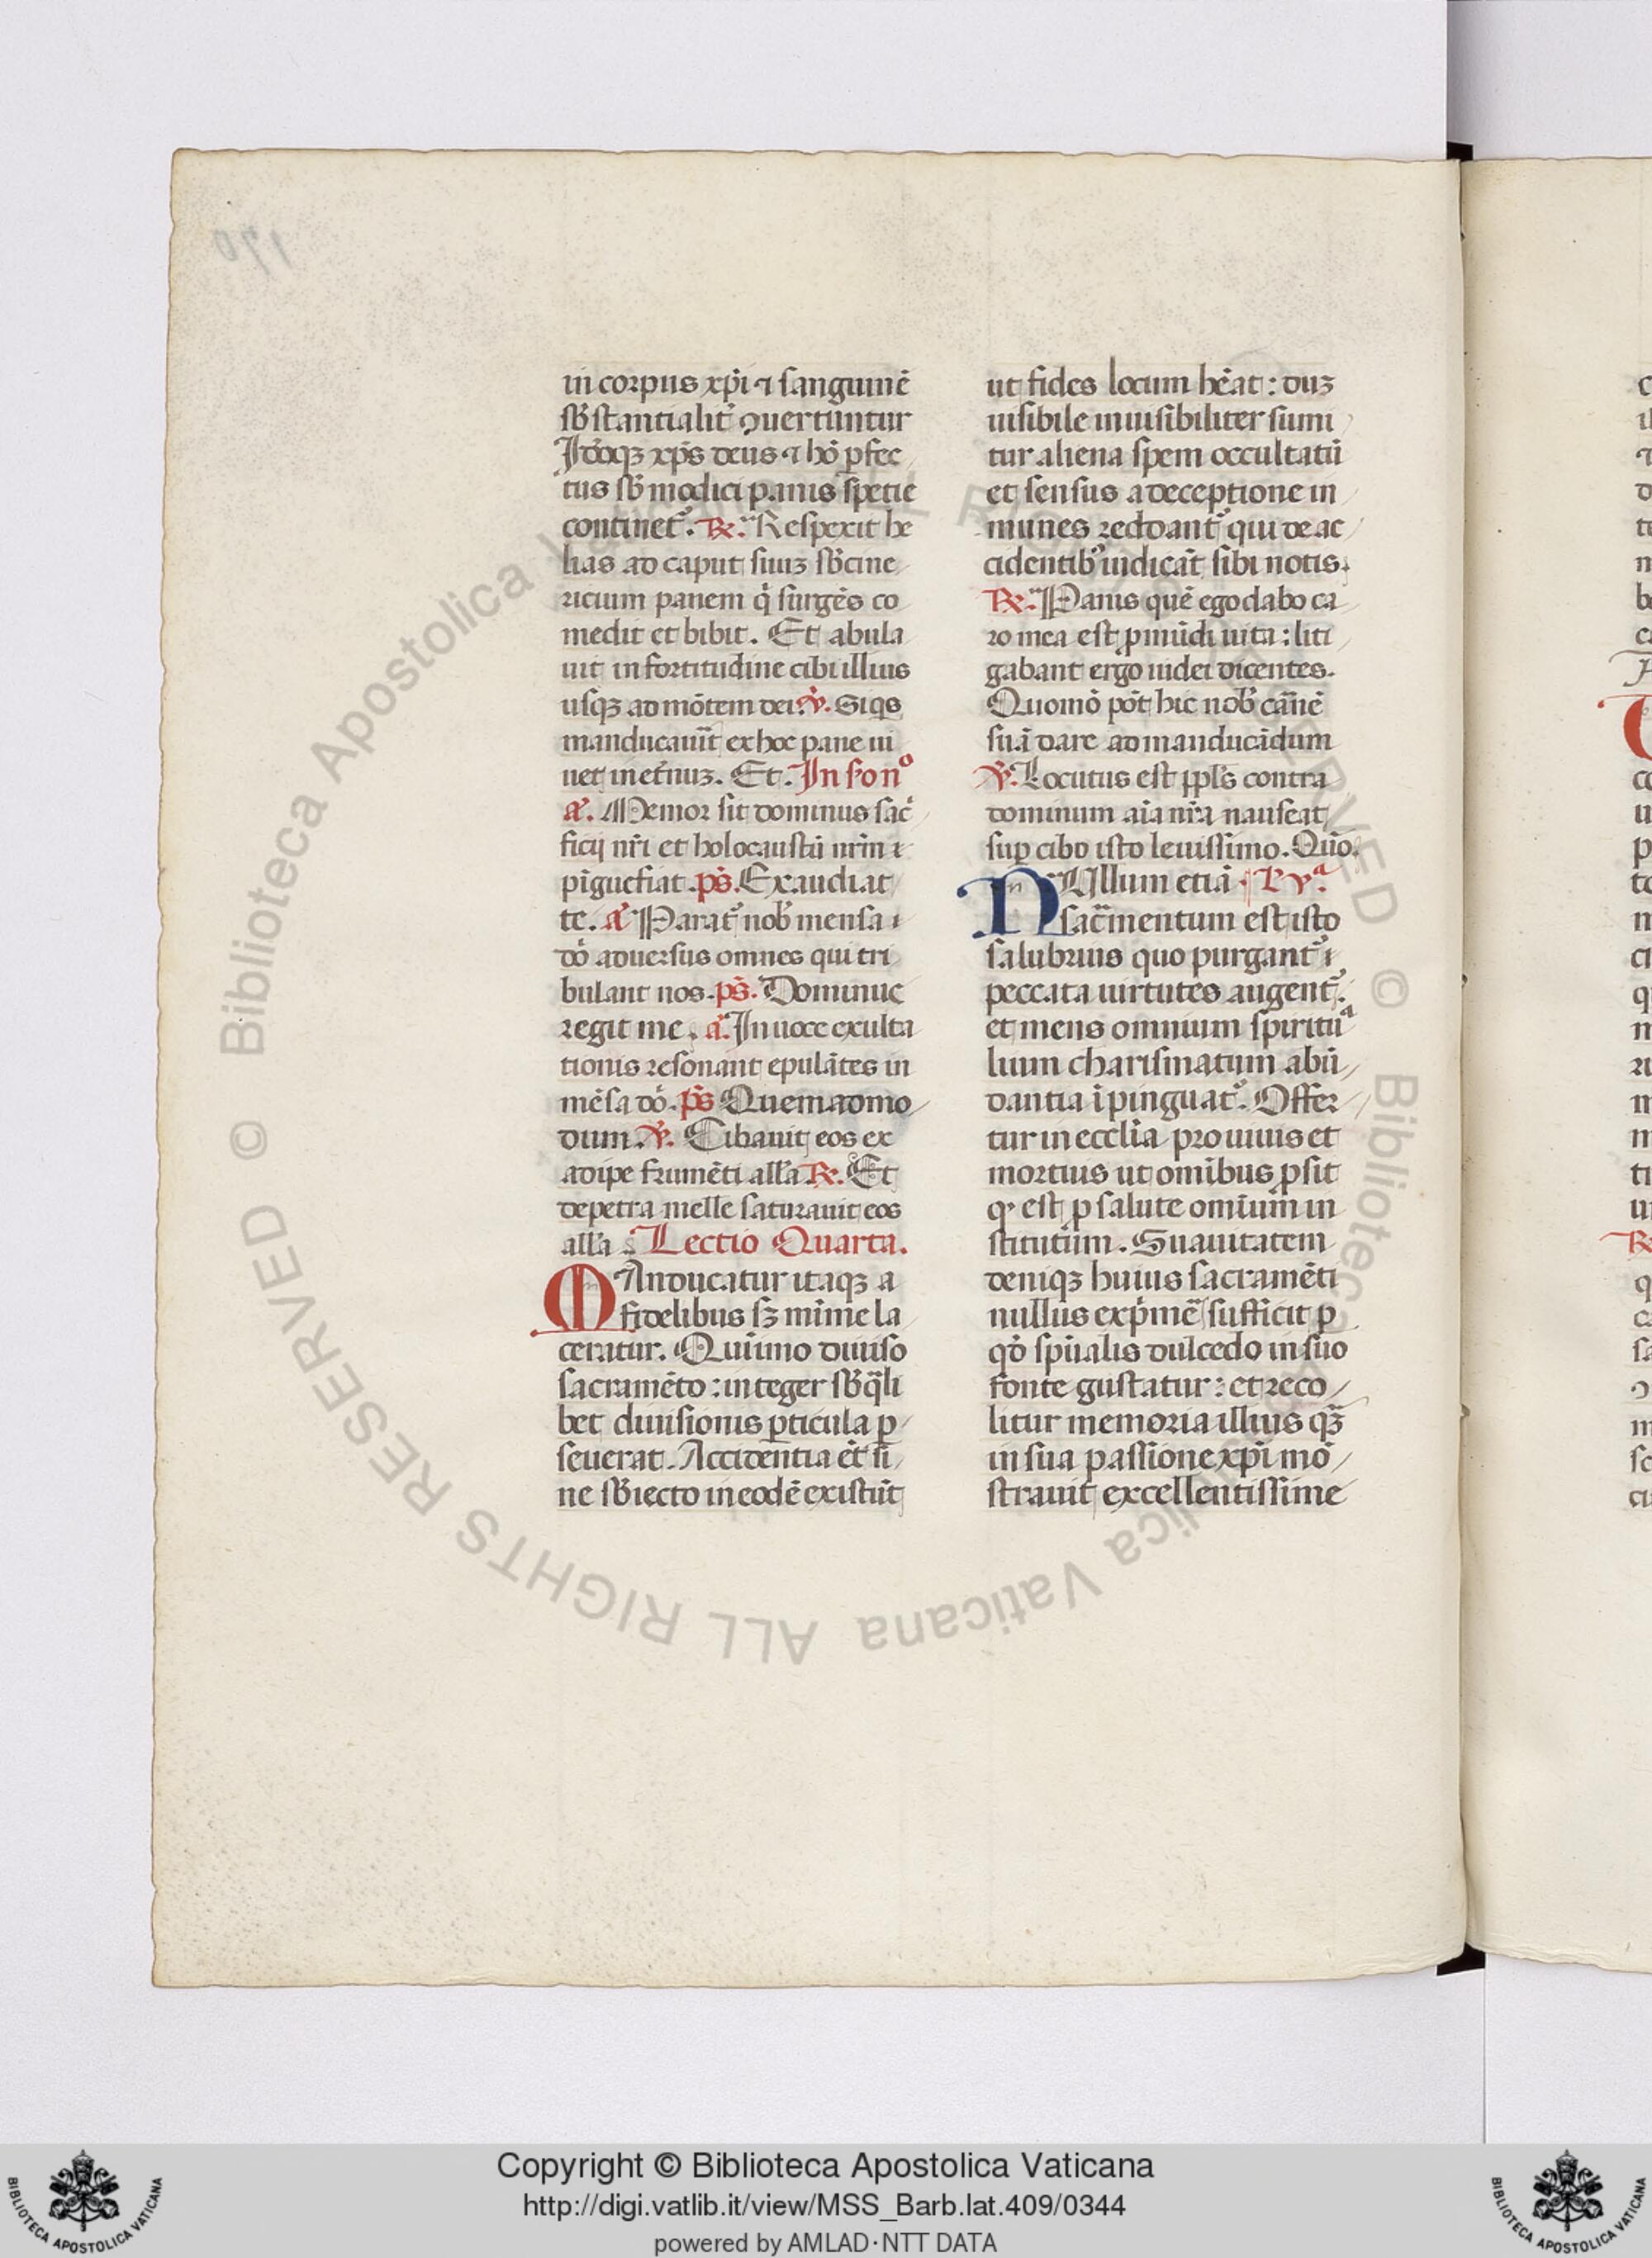 in corpus xp̄i ⁊ sanguinē
sb̄stantialit̉ ꝯuertuntur
Idōqꝫ xp̄s deus ⁊ hō ꝑfec
tus sb̄ modici panis spetie
continet᷑. ℞. Respexit he
lias ad caput suuꝫ sb̄cine
ricium panem q̇ surgēs co
medit et bibit. Et ābula
uit in fortitudine cibi illius
usqꝫ ad mōtem dei. ℣. Siqs
manducauīt ex hoc pane ui
uet in et̉nuꝫ. Et. In ẜo nᵒ
a̅. Memor sit dominus sac̉
ficij nr̄i et holocaustū nr̄m
pīguefiat. pṡ. Exaudiat
te. a̅ Parat᷑ nob̉ mensa
dō aduersus omnes qui tri
bulant nos. pṡ. Dominuc
regit me. a̅. In uoce exulta
tionis resonant epulātes in
mēsa dō. pṡ Quemadmo
dum. ℣. Cibauit eos ex
adipe frumēti all̄a ℞. Et
depetra melle saturauit eos
all̄a Lectio Quarta.
MAnducatur itaqꝫ a
fidelibus sꝫ mīme la
ceratur. Quīmo diuiso
sacramēto : integer sb̄ q̄li
bet diuisionis ꝑticula ꝑ
seuerat. Accidentia ēt si
ne sb̄iecto in eodē existūt
ut fides locum hēat : duꝫ
uisibile inuisibiliter sumi
tur aliena spem occultatū
et sensus a deceptione in
munes reddant᷑ qui de ac
cidentib᷒ iudicāt sibi notis.
℞. Panis quē ego dabo ca
ro mea est ꝓ mūdi uita : liti
gabant ergo iudei dicentes.
Quomō pōt hic nob̉ carnē
suā dare ad manducādum
℣. Locutus est ppl̄s contra
dominum aīa nr̄a nauseat
suꝑ cibo isto leuissimo. Quō.
NUllum etiā L' vᵃ.
sac̄mentum est isto
salubrius quo purgant᷑
peccata uirtutes augent᷑.
et mens omnium spirituᵃ
lium charismatum abū
dantia īpinguat᷑. Offer
tur in eccl̄ia pro uiuis et
mortuis ut omībus ꝓsit
q̇ est ꝓ salute omīum in
stitutum. Suauitatem
deniqꝫ huius sacramēti
nullus exp̄mē sufficit ꝑ
qḋ spūalis dulcedo in suo
fonte gustatur : et reco
litur memoria illius qꝫ̄
in sua passione xp̄i mō
strauit excellentissime
170
© Biblioteca Apostolica Vaticana ALL RIGHTS RESERVED
Copyright © Biblioteca Apostolica Vaticana
http://digi.vatlib.it/view/MSS_Barb.lat.409/0344
powered by AMLAD·NTT DATA
BIBLIOTECA APOSTOLICA VATICANA
BIBLIOTECA APOSTOLICA VATICANA